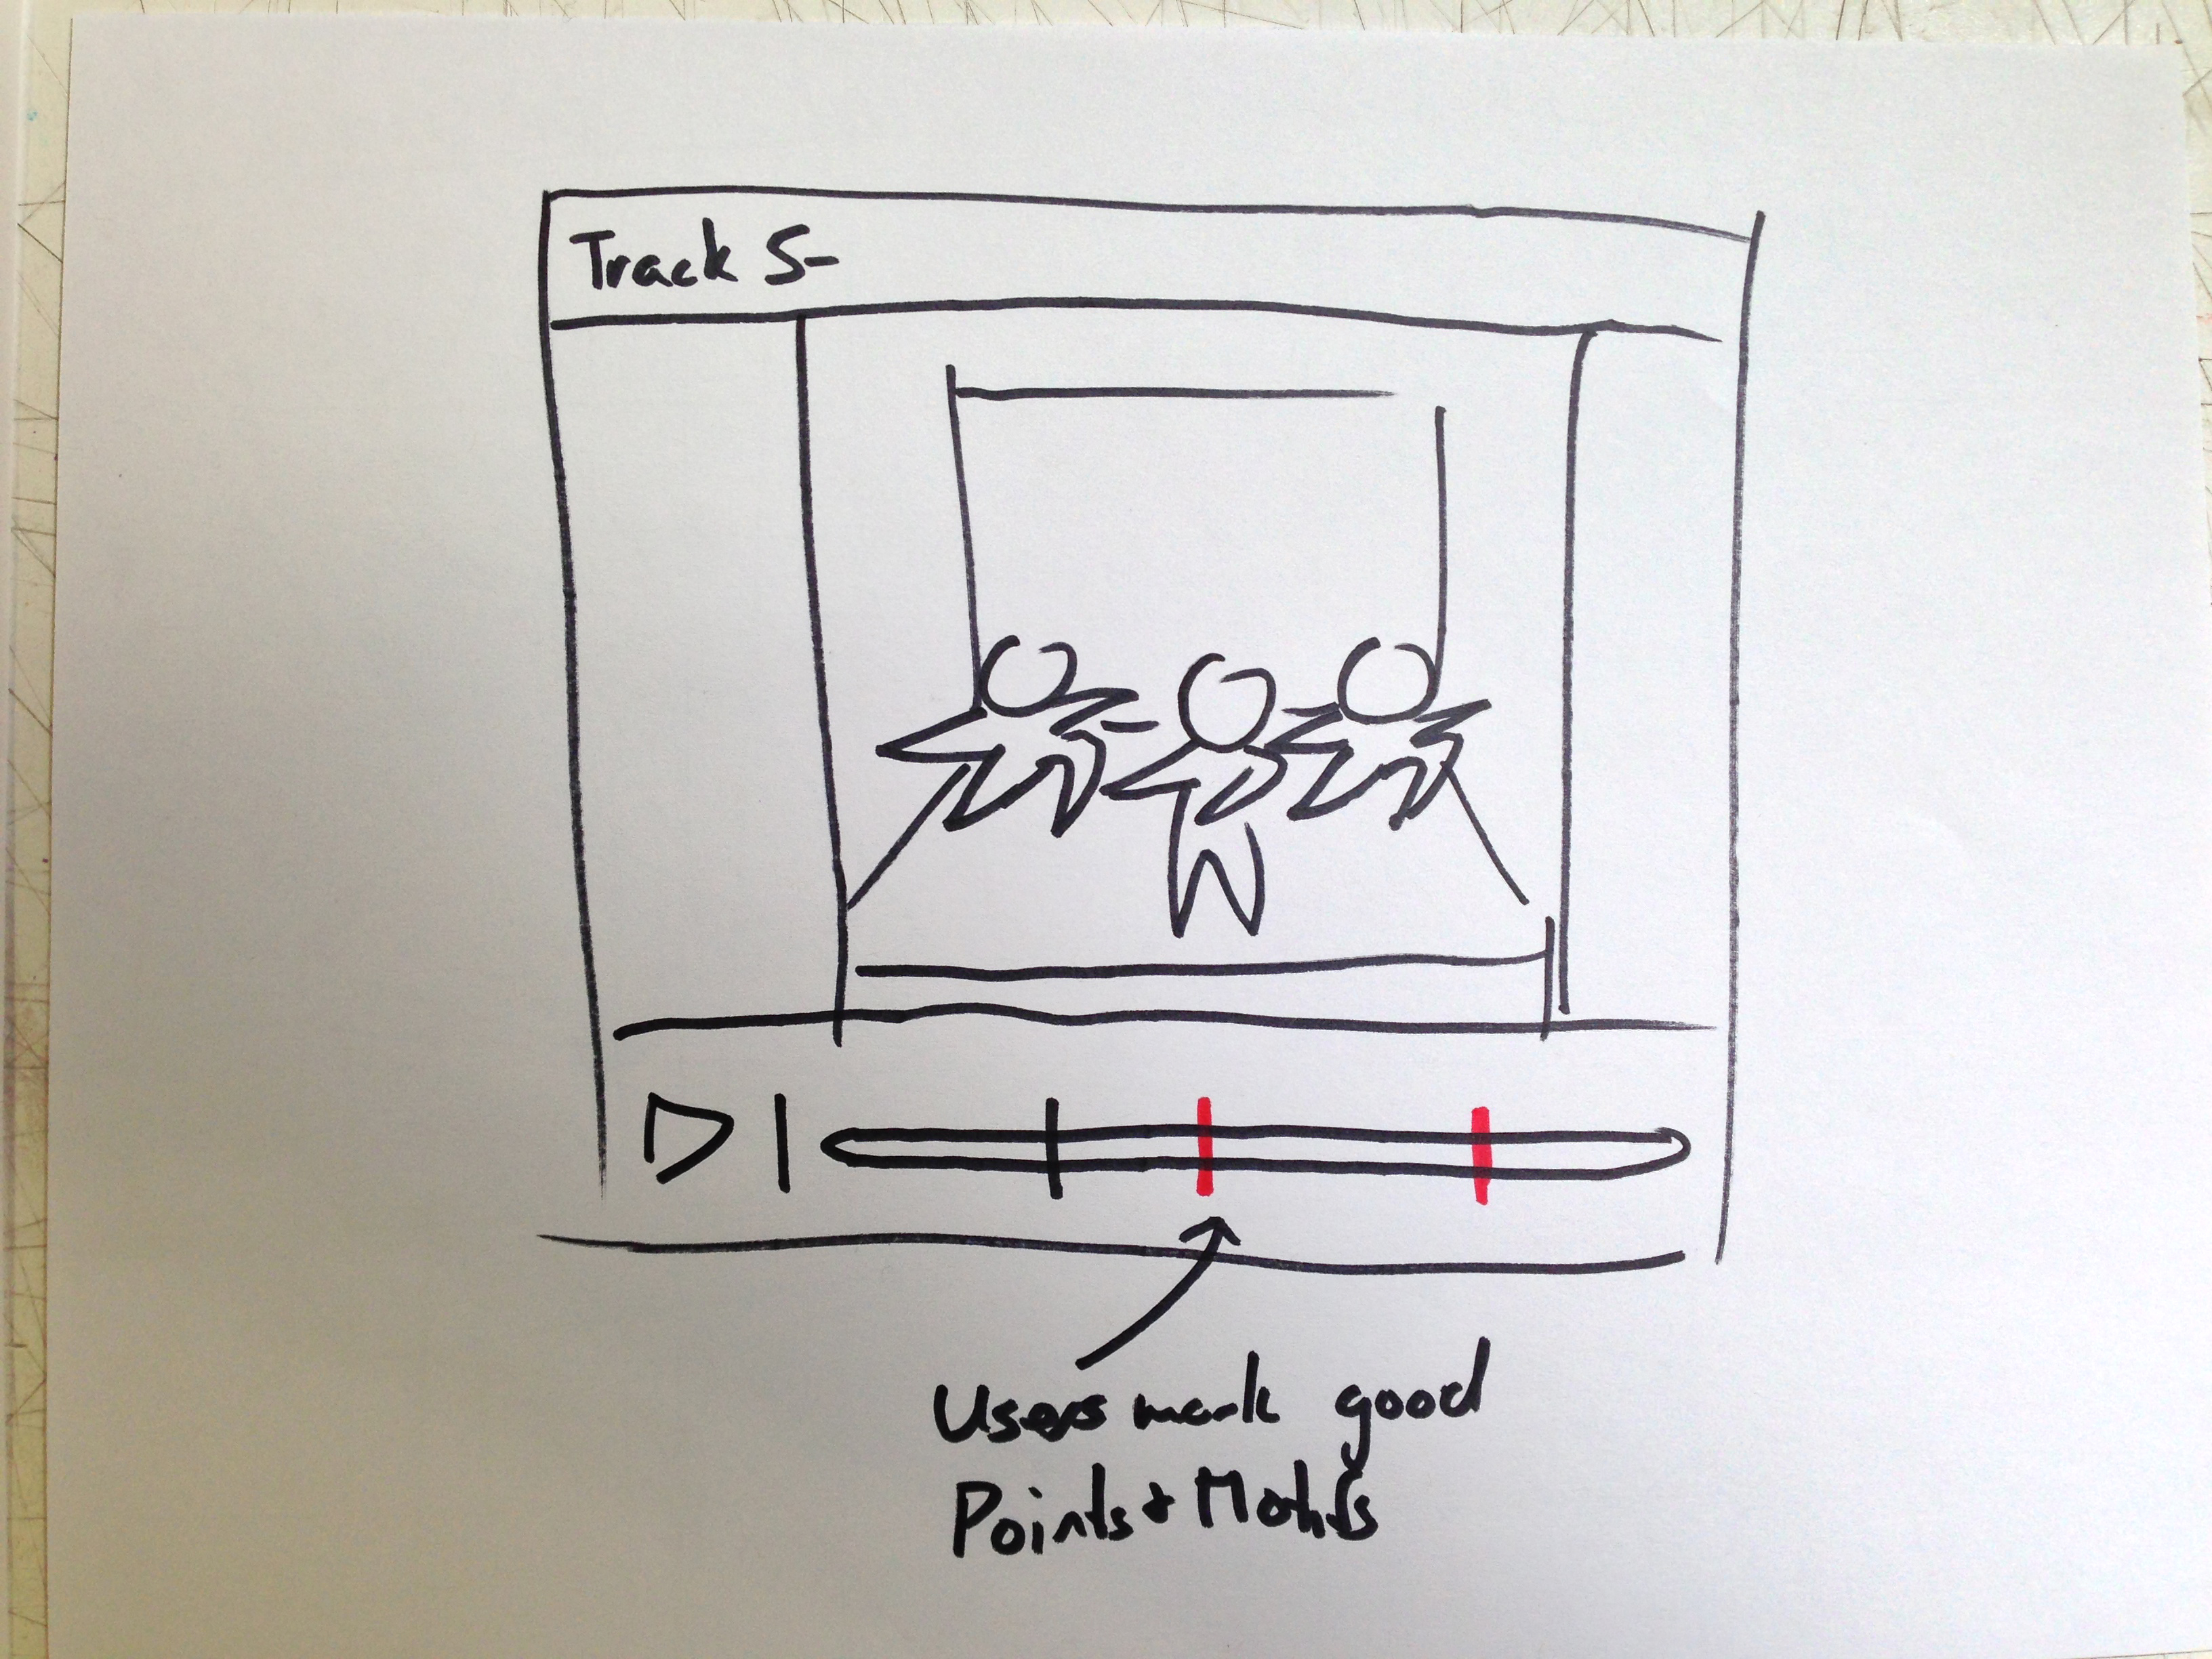 Track 5-
Users mark good
Points + Motifs